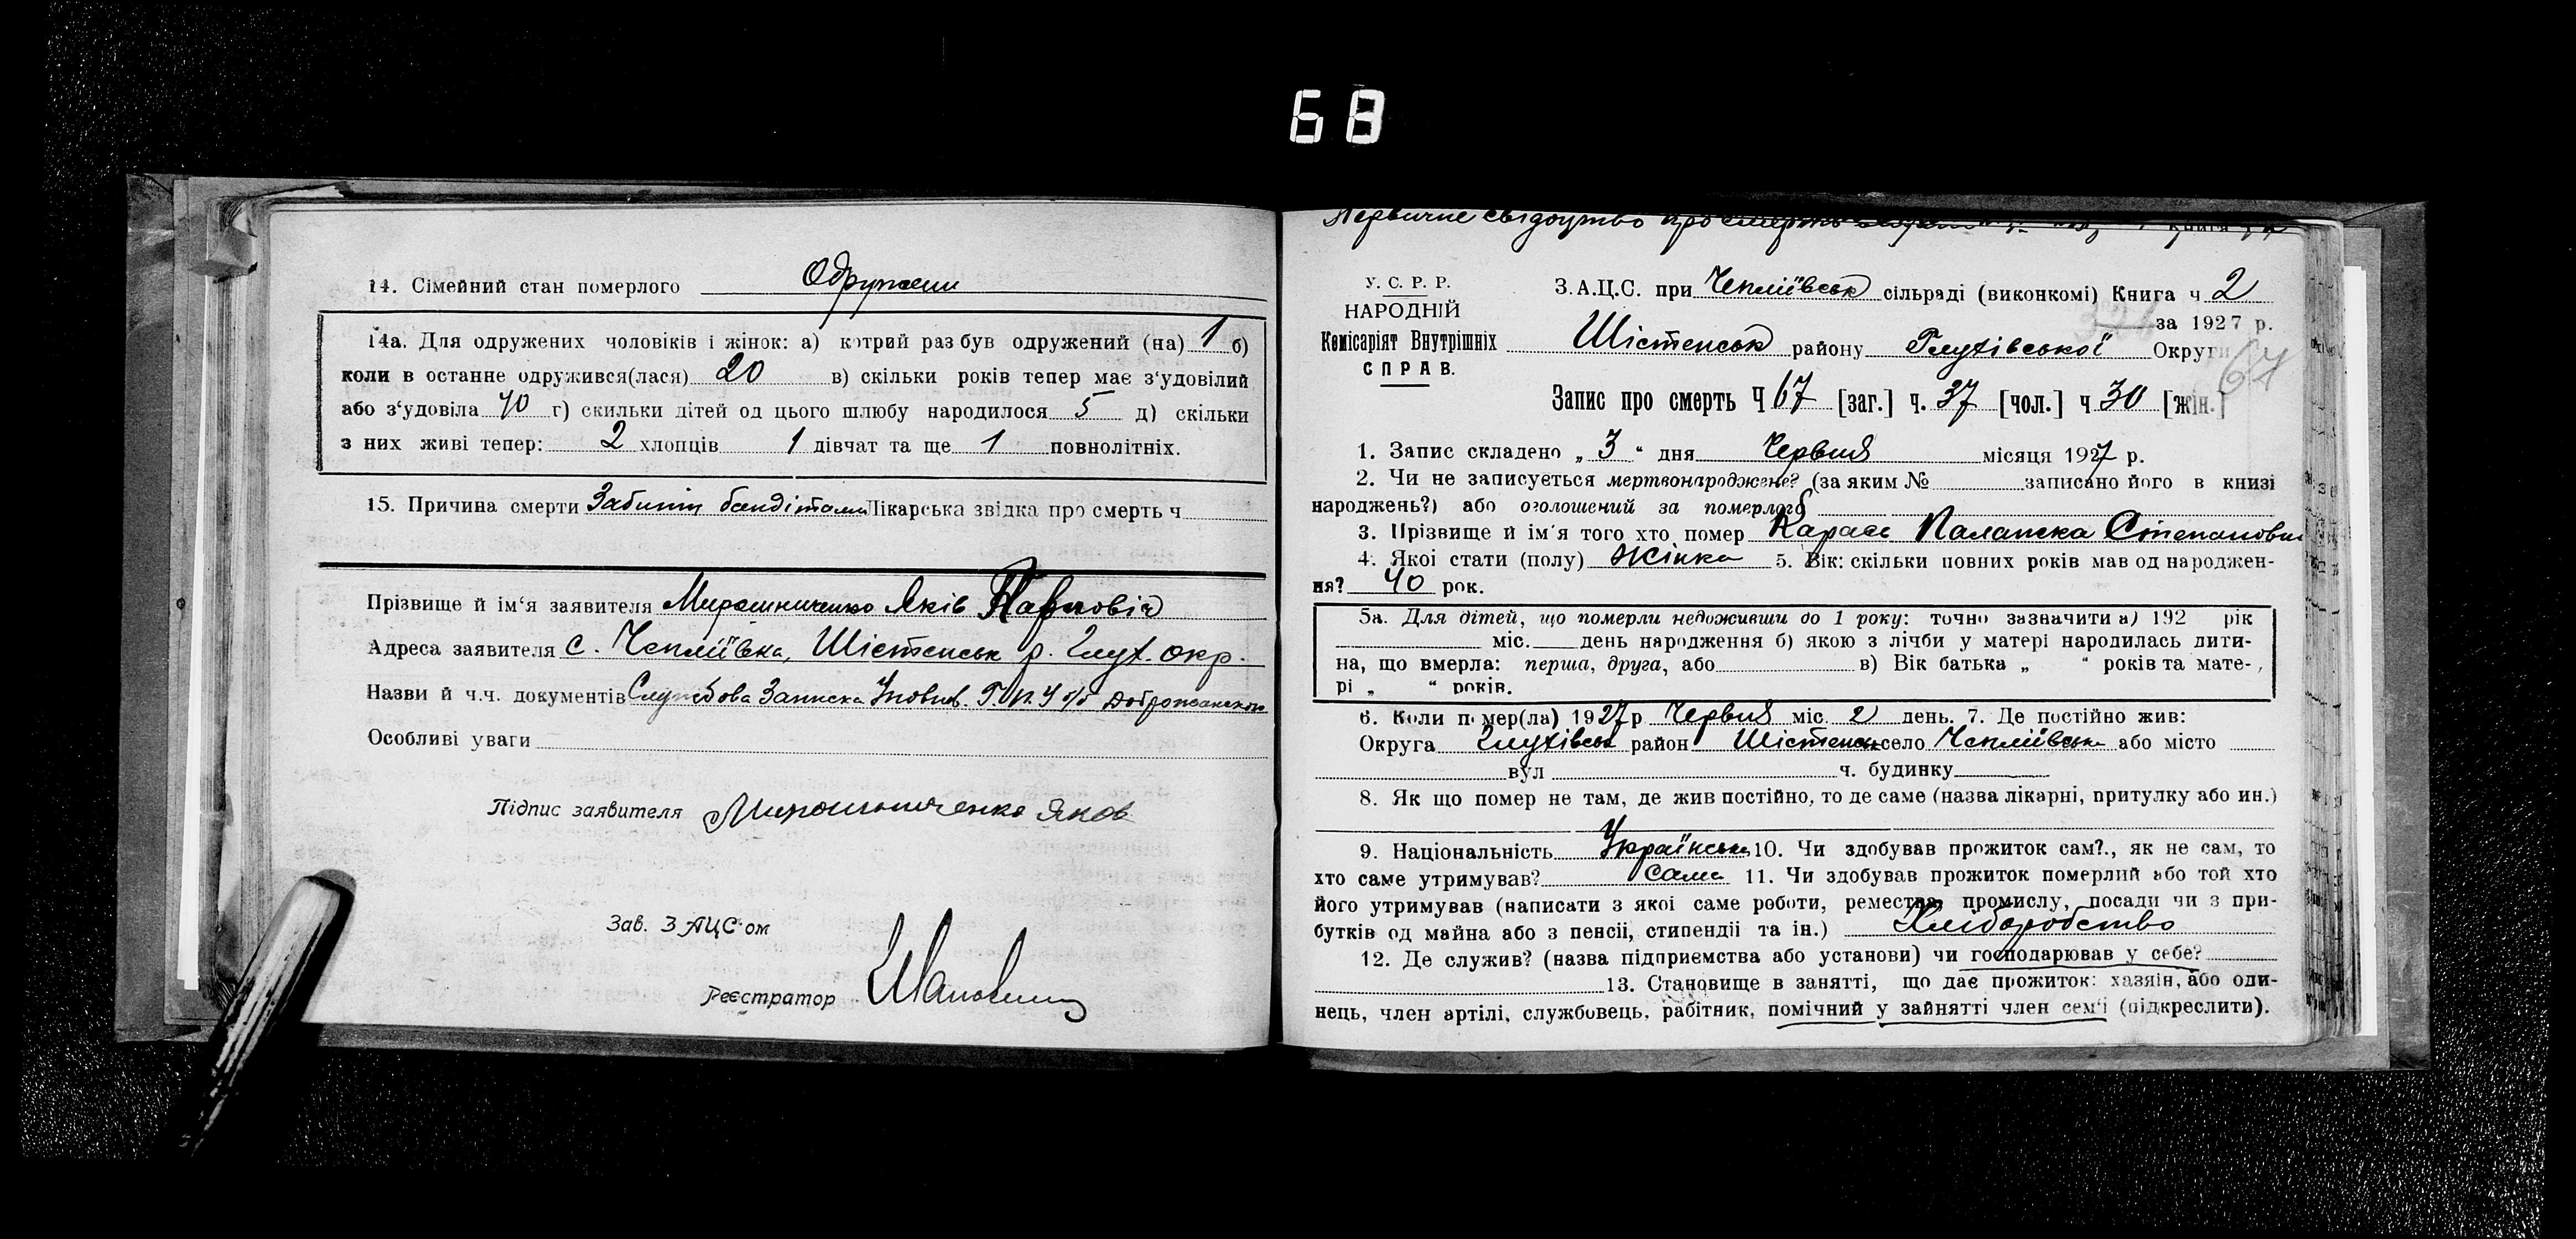 68
14. Сімейний стан померлого Одружени
14а. Для одружених чоловіків і жінок: а) котрий раз був одружений (на) 1 б)
коли в останне одружився(лася) 20 в) скільки років тепер має з'удовілий
або з'удовіла 40 г) скильки дітей од цього шлюбу народилося 5 д) скільки
з них живі тепер: 2 хлопців 1 дівчат та ще 1 повнолітніх.
15. Причина смерти Забити бандітами Лікарська звідка про смерть ч
Прізвище й ім'я заявителя Мирошниченко Яків Павлович
Адреса заявителя с. Чепліївка, Шістенськ р. Глух. окр.
Назви й ч.ч. документів Службова Записка Уповнов. Г.П.У
Особливі уваги
Підпис заявителя Мирошниченко Яков
Зав. ЗАЦС'ом
Реєстратор
Первичне свідоцтво про смерть
У. С. Р. Р.
НАРОДНІЙ
Комісаріят Внутрішніх
СПРАВ.
З.А.Ц.С. при Чепліївськ сільраді (виконкомі) Книга ч 2
за 1927 р.
Шістенськ району Глухівської Округи
67
Запис про смерть Ч 67 [заг.] ч. 37 [чол.] ч 30 [жін.]
1. Запис складено „ 3 “ дня Червня місяця 1927 р.
2. Чи не записується мертвонароджене? (за яким № записано його в книзі
народжень?) або оголошений за померлого
3. Прізвище й ім'я того хто помер Карась Палашка Степановна
4. Якої стати (полу) Жінка 5. Вік: скільки повних років мав од народжен-
ня? 40 рок.
5а. Для дітей, що померли недоживши до 1 року: точно зазначити а) 192 рік
міс. день народження б) якою з лічби у матері народилась дити-
на, що вмерла: перша, друга, або в) Вік батька „ “ років та мате-
рі „ “ років.
6. Коли помер(ла) 1927 р Червня міс. 2 день. 7. Де постійно жив:
Округа Глухівськ район Шістенськ село Чепліївськ або місто
вул ч. будинку
8. Як що помер не там, де жив постійно, то де саме (назва лікарні, притулку або ин.)
9. Національність Українська 10. Чи здобував прожиток сам?., як не сам, то
хто саме утримував? Сама 11. Чи здобував прожиток померлий або той хто
його утримував (написати з якої саме роботи, ремества, промислу, посади чи з при-
бутків од майна або з пенсії, стипендії та ін.) Хліборобство
12. Де служив? (назва підприємства або установи) чи господарював у себе?
13. Становище в занятті, що дає прожиток: хазяїн, або оди-
нець, член артілі, службовець, рабітник, помічний у зайнятті член сем'ї (підкреслити).